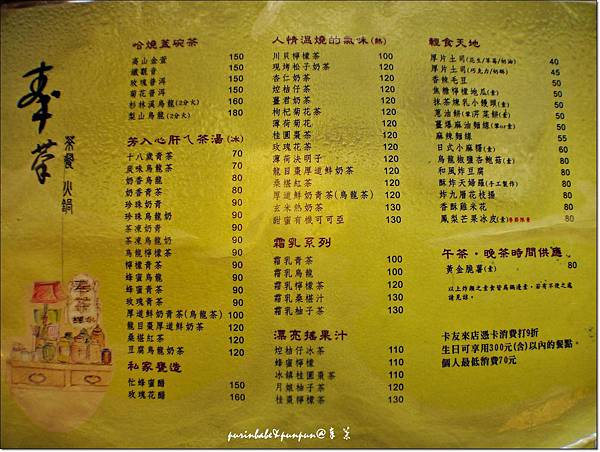 奉茶
茶餐 火鍋
哈燒蓋碗茶
高山金萱 150
鐵觀音 150
玫瑰普洱 150
菊花普洱 150
杉林溪烏龍(2分火) 160
梨山烏龍(2分火) 180
芳入心肝ㄟ茶湯(冰)
十八歲青茶 70
炭味烏龍茶 70
奶香烏龍 80
奶香青茶 80
珍珠奶青 90
珍珠烏龍奶 90
茶凍奶青 90
茶凍烏龍奶 90
烏龍檸檬茶 90
檸檬青茶 90
蜂蜜烏龍 90
蜂蜜青茶 90
玫瑰青茶 90
厚道鮮奶青茶(烏龍茶) 100
龍目棗厚道鮮奶茶 120
桑椹紅茶 120
豆腐烏龍奶茶 120
私家甕造
忙蜂蜜醋 150
玫瑰花醋 160
人情溫燒的氣味(熱)
川貝檸檬茶 100
現烤松子奶茶 120
杏仁奶茶 120
焢柚仔茶 120
薑君奶茶 120
枸杞菊花茶 120
薄荷菊花 120
桂圓棗茶 120
玫瑰花茶 120
薄荷決明子 120
龍目棗厚道鮮奶茶 120
桑椹紅茶 120
厚道鮮奶青茶(烏龍茶) 130
玄米熱奶茶 130
甜蜜有機可可亞 130
霜乳系列
霜乳青茶 100
霜乳烏龍 100
霜乳檸檬茶 120
霜乳桑椹汁 130
霜乳柚子茶 130
漂亮搖果汁
焢柚仔冰茶 110
蜂蜜檸檬 110
冰鎮桂圓棗茶 110
月娘柚子茶 130
桂棗檸檬茶 130
輕食天地
厚片土司(花生/草莓/奶油) 40
厚片土司(巧克力/奶酥) 45
香辣毛豆 50
焦糖檸檬地瓜(素) 50
抹茶煉乳小饅頭(素) 50
蔥油餅(素) 50
薑爆麻油麵線(葷or素) 50
麻辣麵線 50
日式小麻糬(素) 60
烏龍椒鹽杏鮑菇(素) 80
和風炸豆腐 80
酥炸天婦羅(手工製作) 80
炸九層花枝捲 80
香酥雞米花 80
鳳梨芒果冰皮(素) 80
午茶·晚茶時間供應
黃金脆薯(素) 80
以上炸類之素食皆為鍋邊素,若有不便之處
請見諒。
卡友來店憑卡消費打9折
生日可享用300元(含)以內的餐點。
個人最低消費70元
purinbabe&punpun@奉茶